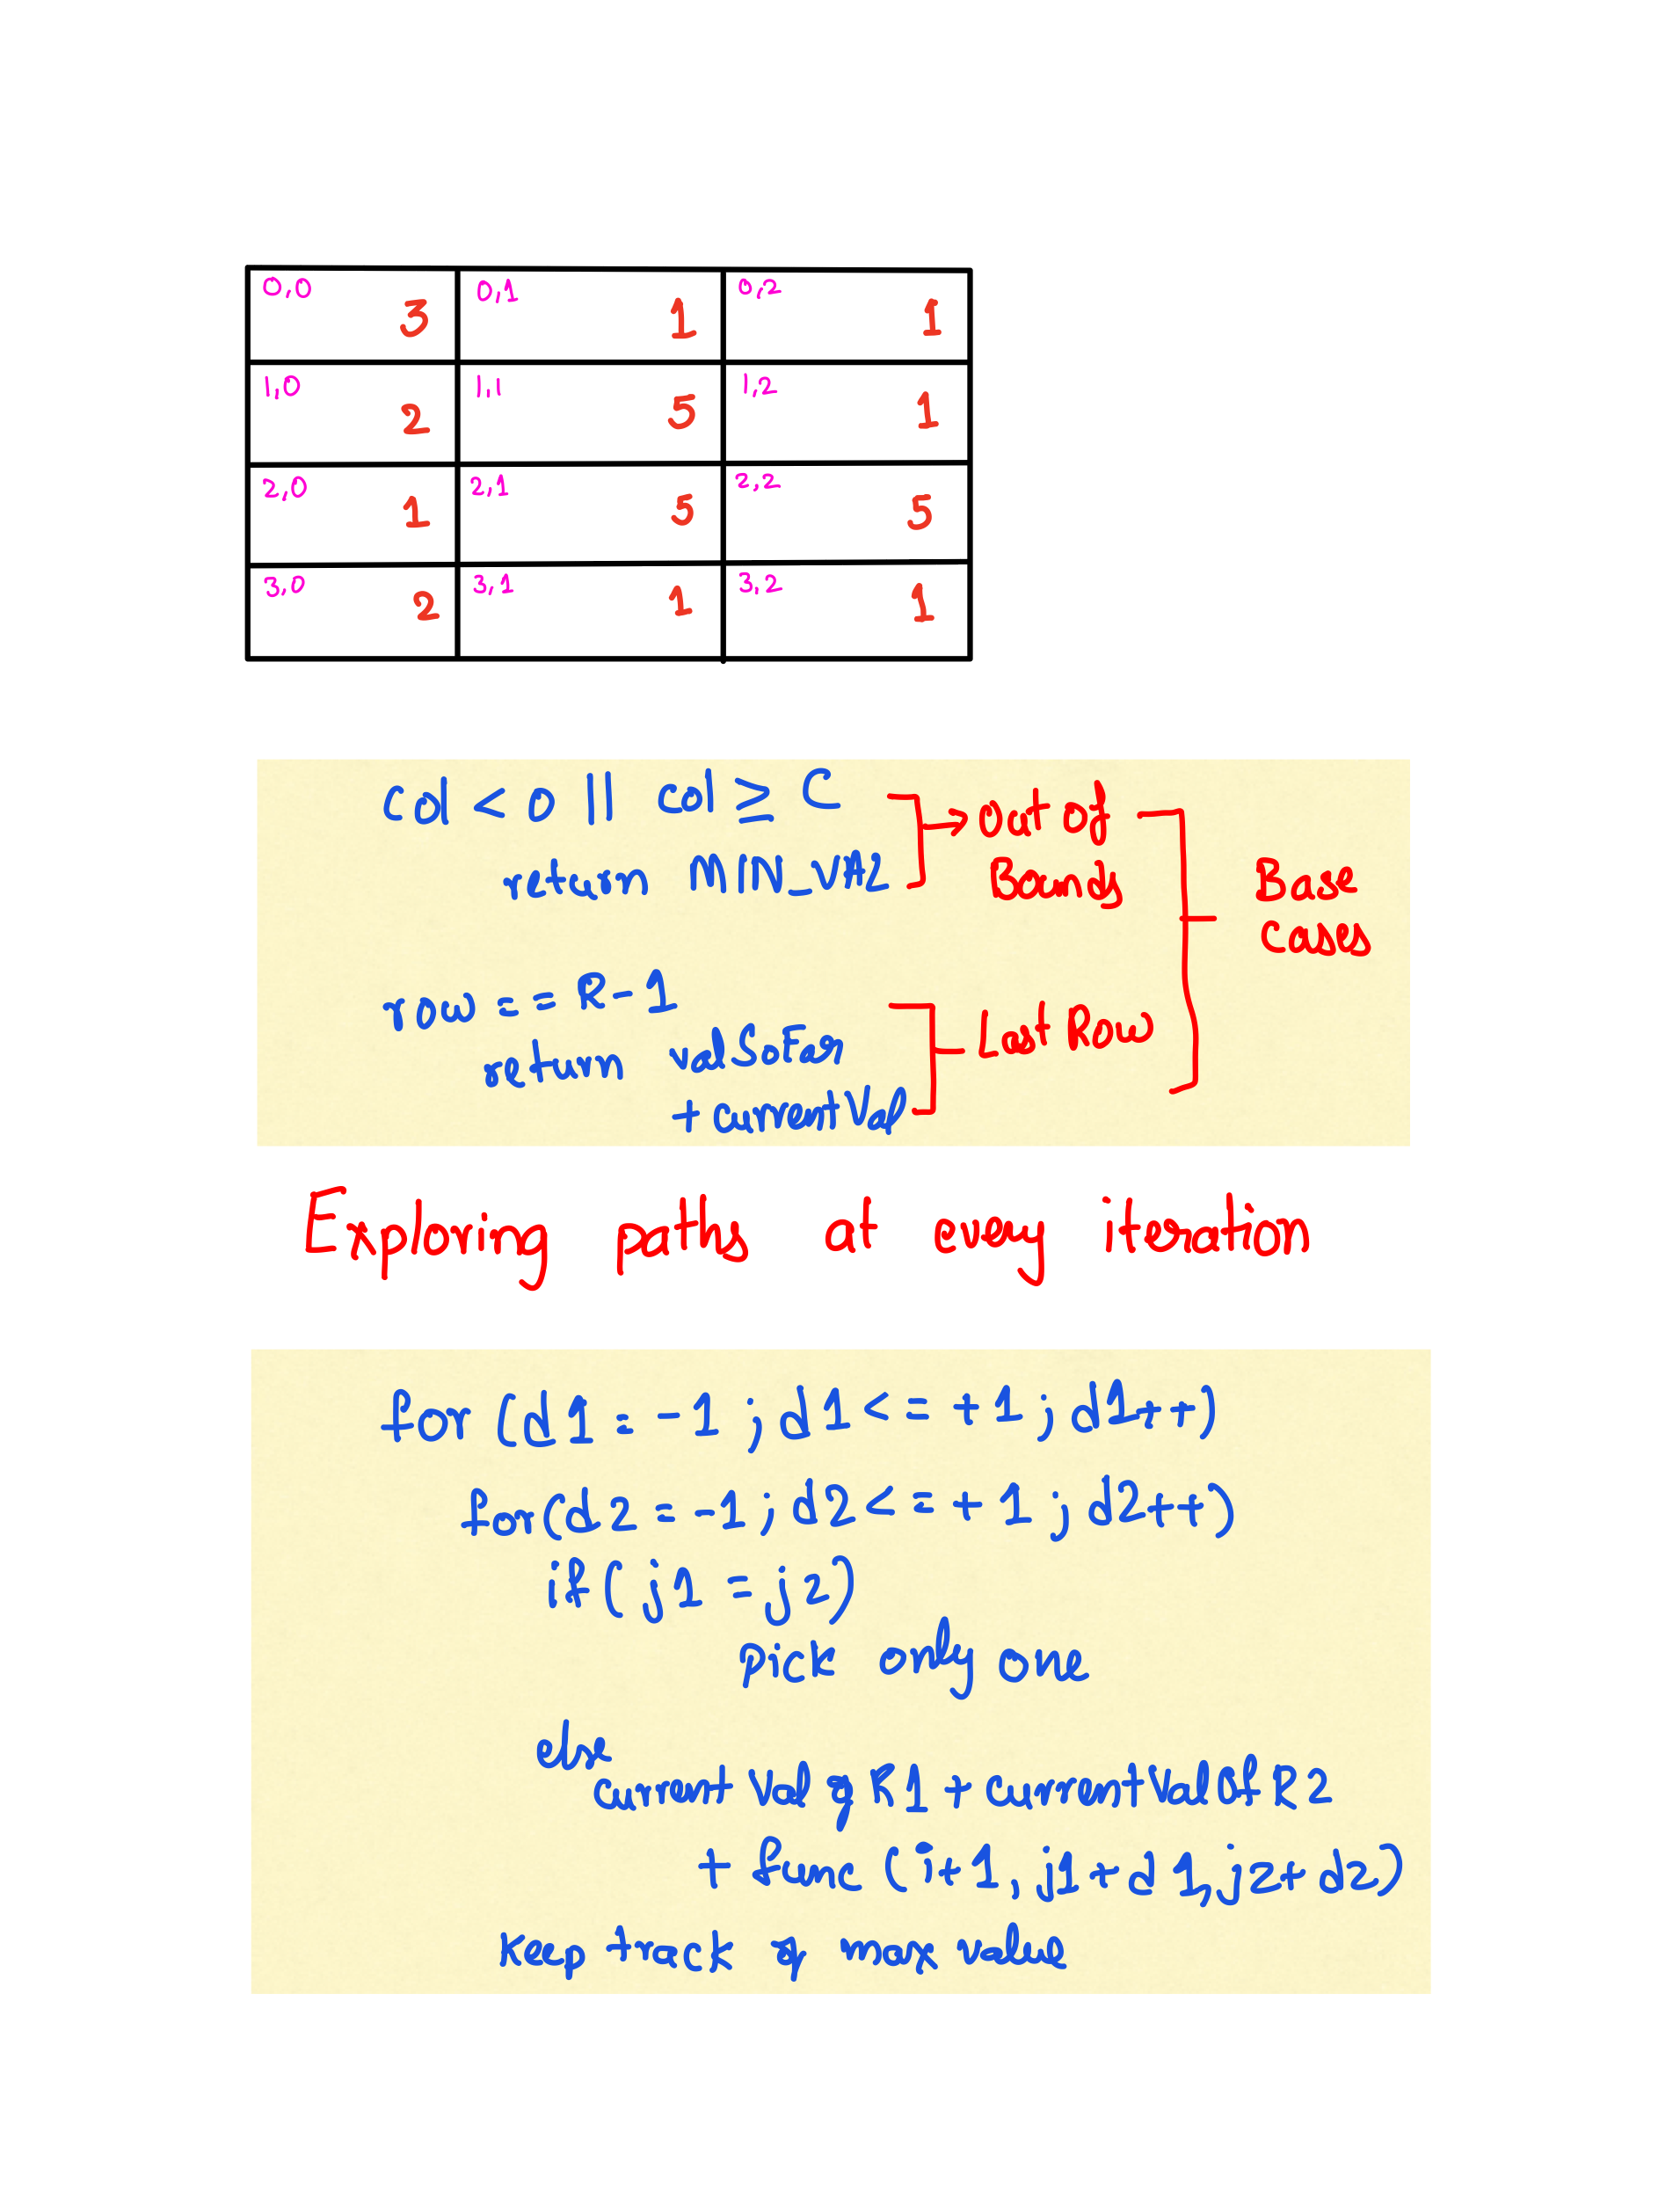 0,0 3 0,1 1 0,2 1
1,0 2 1,1 5 1,2 1
2,0 1 2,1 5 2,2 5
3,0 2 3,1 1 3,2 1
col < 0 || col ≥ C → Out of
return MIN_VAL Bounds
Base
cases
row == R-1
Last Row
return valSoFar
+ currentVal
Exploring paths at every iteration
for (d1 = -1 ; d1 <= +1 ; d1++)
for(d2 = -1 ; d2 <= +1 ; d2++)
if ( j1 = j2)
pick only one
else
current Val of R1 + currentValOf R2
+ func (i+1, j1+d1, j2+d2)
keep track of max value